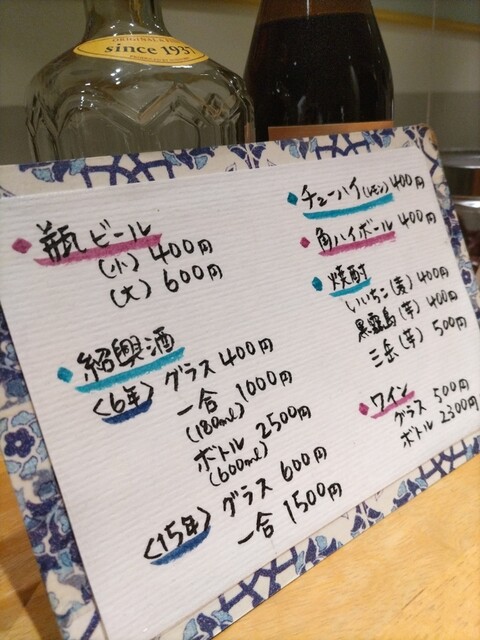 since 1937
瓶ビール
(小) 400円
(大) 600円
紹興酒
<6年> グラス 400円
一合 1000円
(180ml)
ボトル 2500円
(600ml)
<15年> グラス 600円
一合 1500円
チューハイ(レモン) 400円
角ハイボール 400円
焼酎
いいちこ(麦) 400円
黒霧島(芋) 400円
三岳(芋) 500円
ワイン
グラス 500円
ボトル 2300円